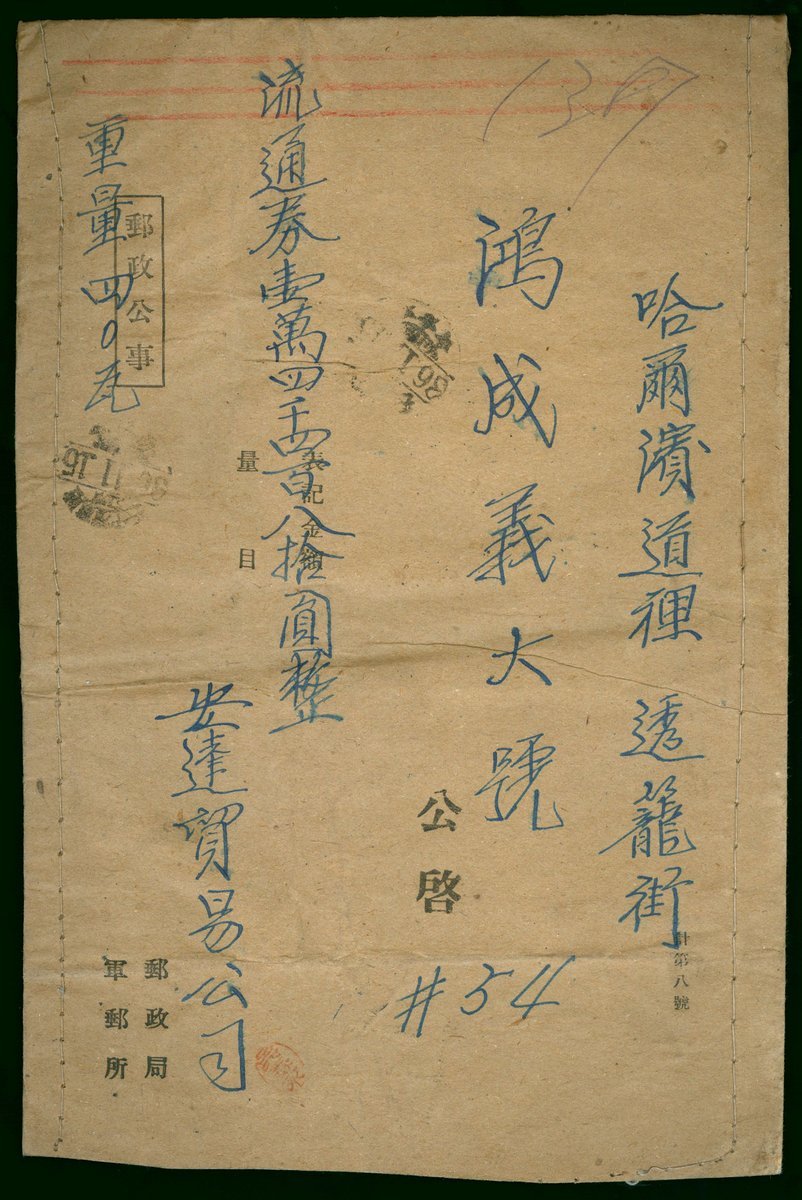 137
哈爾濱道裡 透籠街
計第八號
鴻成義大號
公啓
#54
流通券壹萬四千四百八拾圓整
表記金額
量目
安達貿易公司
重量四0瓦
郵政公事
郵政局
軍郵所